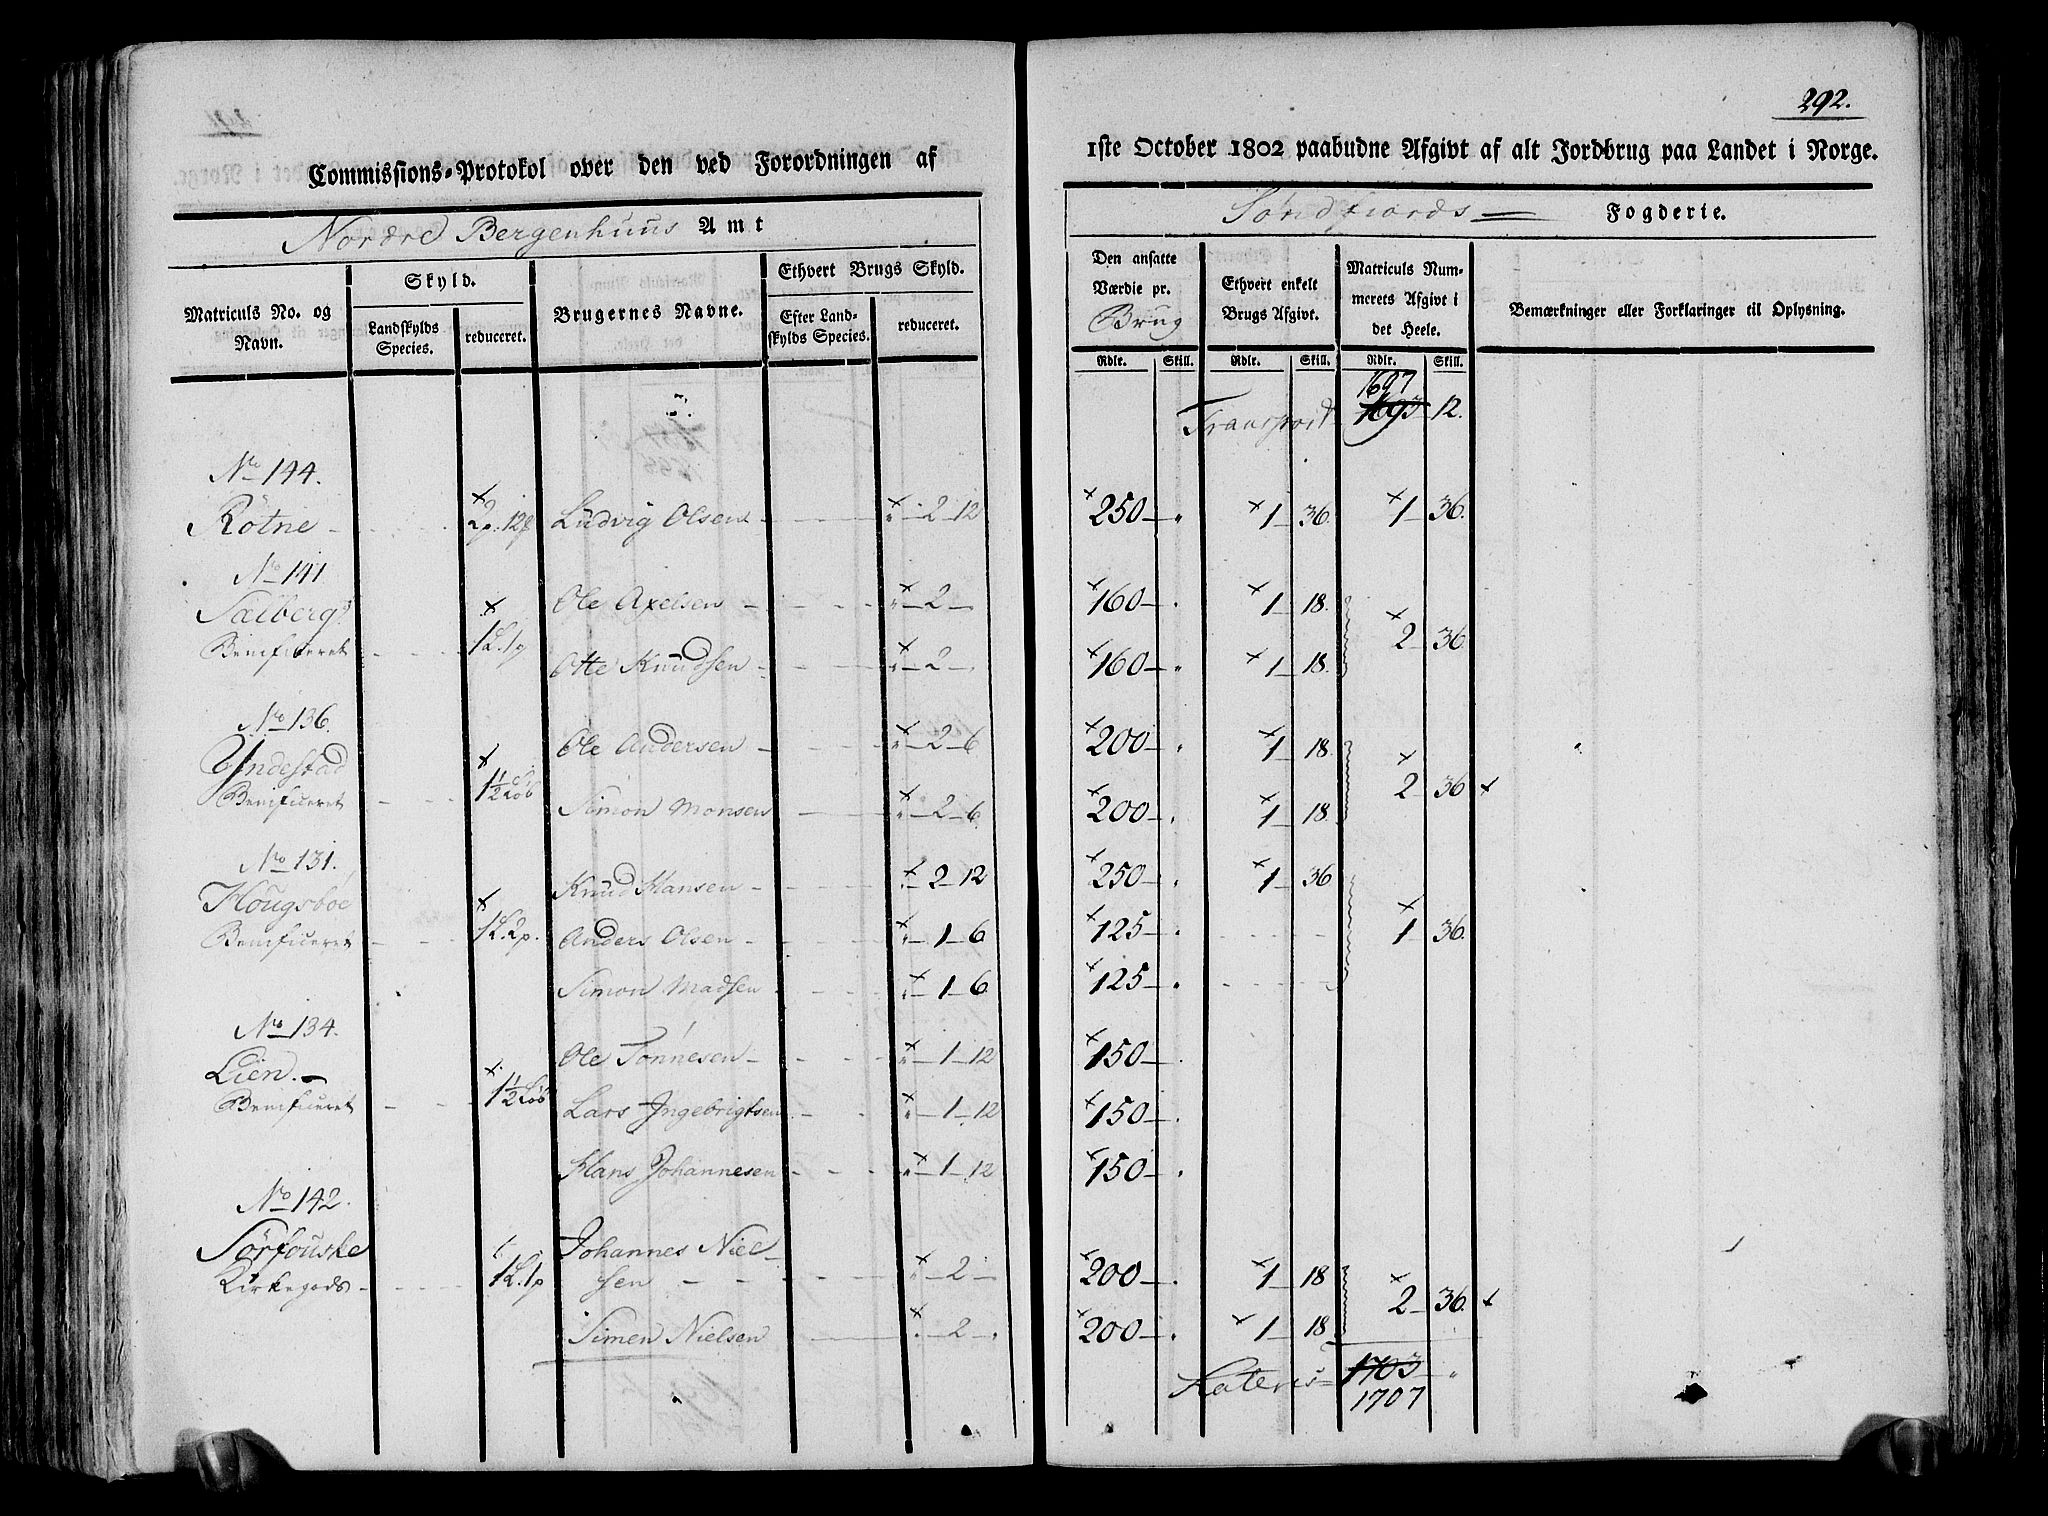 292.
Commissions-Protokol over den ved Forordningen af
1ste October 1802 paabudne Afgivt af alt Jordbrug paa Landet i Norge.
Nordre Bergenhuus Amt
Söndfiords Fogderie.
Matriculs No. og Navn.
Skyld.
Landskylds Species.
reduceret.
Brugernes Navne.
Ethvert Brugs Skyld.
Efter Landskylds Species.
reduceret.
Den ansatte Værdie pr. Brug
Ethvert enkelt Brugs Afgivt.
Matriculs Nummerets Afgivt i det Heele.
Bemærkninger eller Forklaringer til Oplysning.
Rdlr. Skill. Rdlr. Skill. Rdlr. Skill.
1697
Transport 1693 12.
No 144.
Rötne 2p. 12 Ludvig Olsen 2 12 250 1 36. 1 36.
No 141
Ole Axelsen 2 160 1 18.
Benificeret 1L. 1p 2 36
Otte Knudsen 2 160 1 18.
No 136.
Yndestad Ole Andersen 2 6 200 1 18.
Benificeret 1½ Löb 2 36
Simon Monsen 2 6. 200 1 18.
No 131.
Hougsboe Knud Hansen 2 12 250 1 36
Benificeret 1L. 2p. Anders Olsen 1 6 125 1 36.
Simon Madsen 1 6 125
No 134.
Lien. Ole Tönnesen 1 12 150
Benificeret 1½ Löb Lars Ingebrigtsen 1 12 150
Hans Johannesen 1 12 150
No 142.
Sörfouske Johannes Niel-
Kirkegods 1L. 1p sen 2 200 1 18
2 36.
Simen Nielsen 2 200 1 18
Lateris 1703
1707